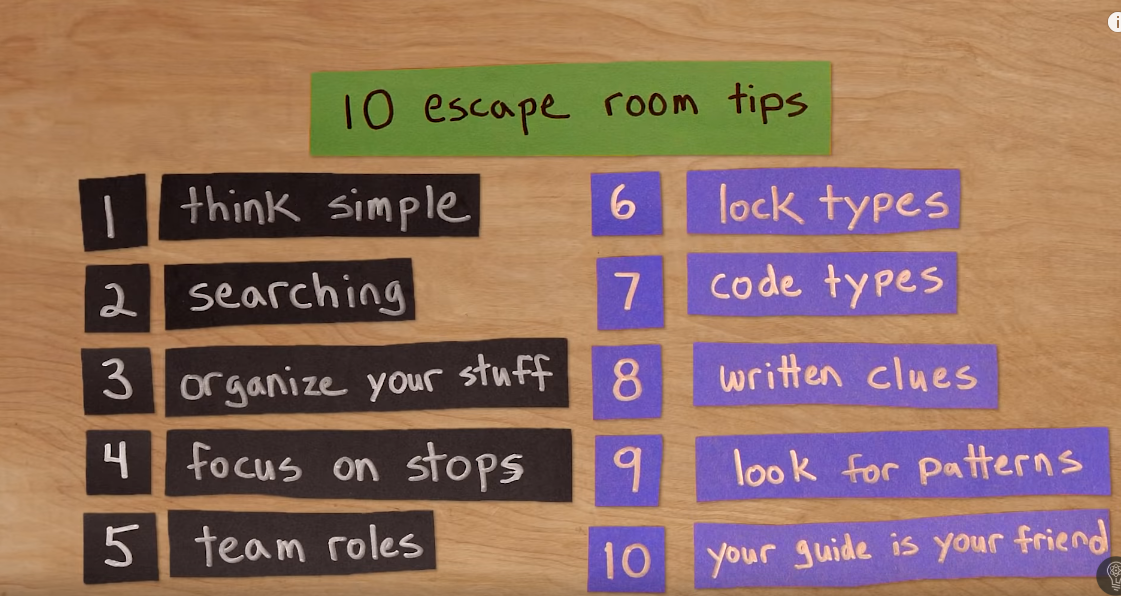 10 escape room tips
1 think simple
2 searching
3 organize your stuff
4 focus on stops
5 team roles
6 lock types
7 code types
8 written clues
9 look for patterns
10 your guide is your friend
i